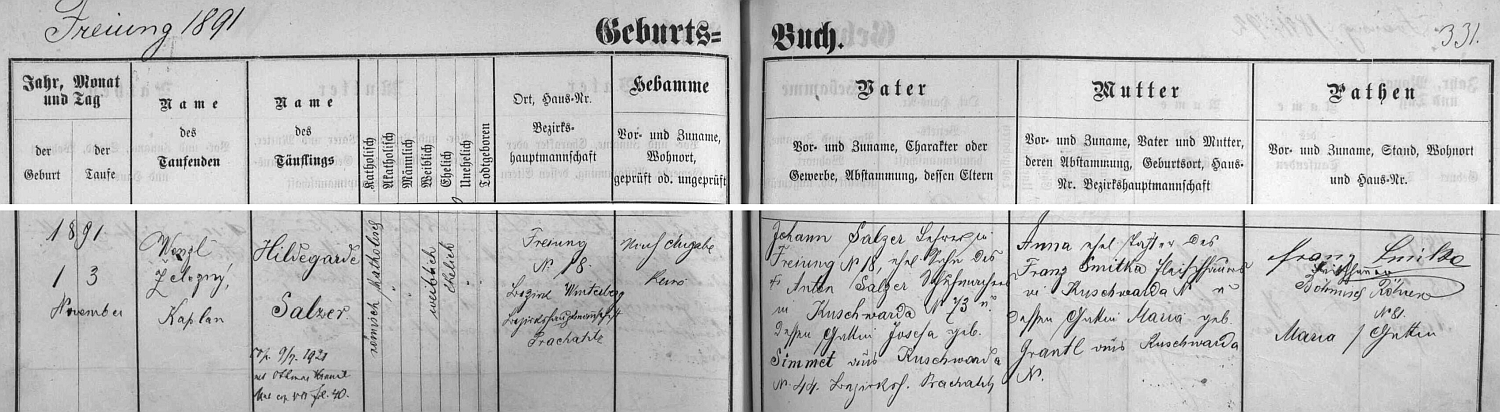 Freiung 1891
Geburts=
Buch.
331.
Jahr, Monat
und Tag
der
Geburt
der
Taufe
Name
des
Taufenden
Name
des
Täuflings
Katholisch
Akatholisch
Männlich
Weiblich
Ehelich
Unehelich
Todtgeboren
Ort, Haus-Nr.
Bezirks-
hauptmannschaft
Hebamme
Vor- und Zuname,
Wohnort,
geprüft od. ungeprüft
Vater
Vor- und Zuname, Charakter oder
Gewerbe, Abstammung, dessen Eltern
Mutter
Vor- und Zuname, Vater und Mutter,
deren Abstammung, Geburtsort, Haus-
Nr. Bezirkshauptmannschaft
Pathen
Vor- und Zuname, Stand, Wohnort
und Haus-Nr.
1891
1 3
November
Wenzl
Železný,
Kaplan
Hildegarde
Salzer
9/7 1921
fol. 40.
römisch katholisch
weiblich
ehelich
Freiung
N. 18.
Bezirk Winterberg
Bezirkshauptmannschaft
Prachatitz
Johann Salzer Lehrer in
Freiung N 18, ehel. Sohn des
Anton Salzer Schuhmachers
in Kuschwarda N 73 u
dessen Gattin Josefa geb.
Simmet aus Kuschwarda
N. 44. Bezirksh. Prachatitz
Anna ehel. Tochter des
Franz Smitka Fleischhauers
in Kuschwarda N u
dessen Gattin Maria geb.
Grantl aus Kuschwarda
N.
Franz Smitka
Fleischhauer
Böhmisch Röhren
N 81.
Maria / Gattin